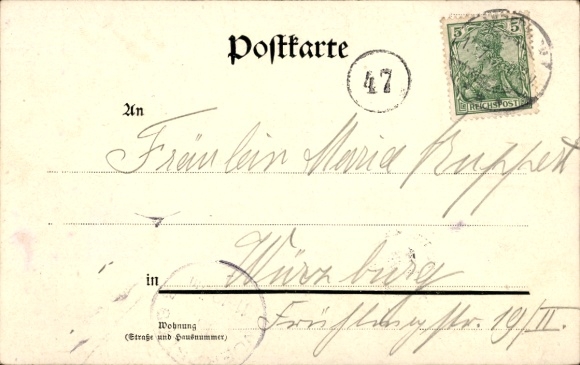 Postkarte
5 5
REICHSPOST
47
An
Fräulein Maria Ruppert
in Würzburg
Wohnung
(Straße und Hausnummer)
Frühlingstr. 19/II.